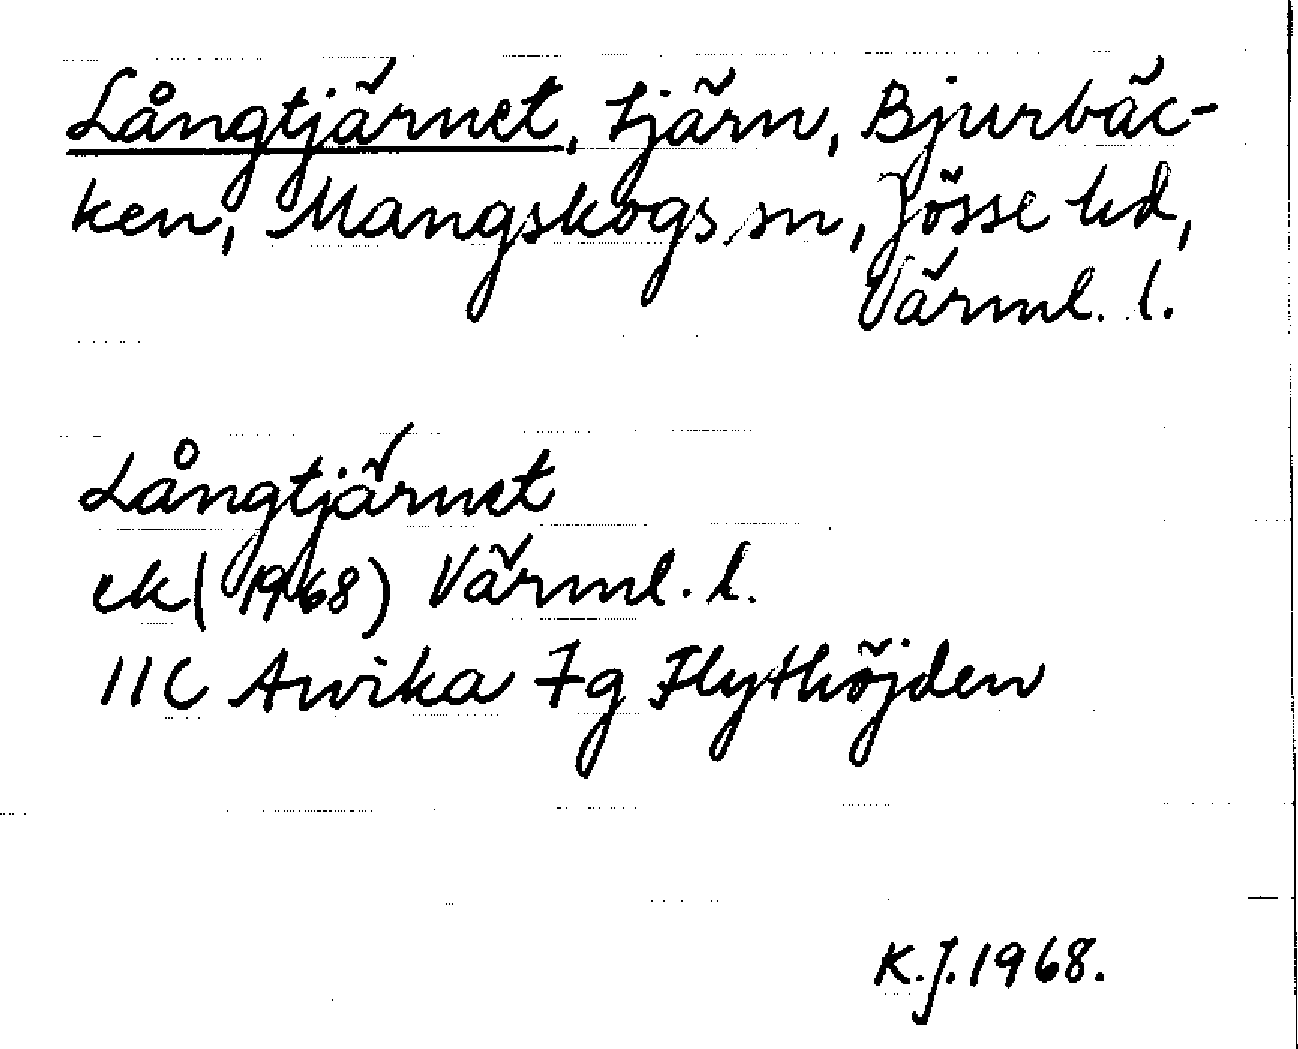 Långtjärnet, tjärn, Bjurbäc-
ken, Mangskogs sn, Jösse hd,
Värml. l.
Långtjärnet
ek (1968) Värml. l.
11C Arvika 7g Flythöjden
K.J. 1968.